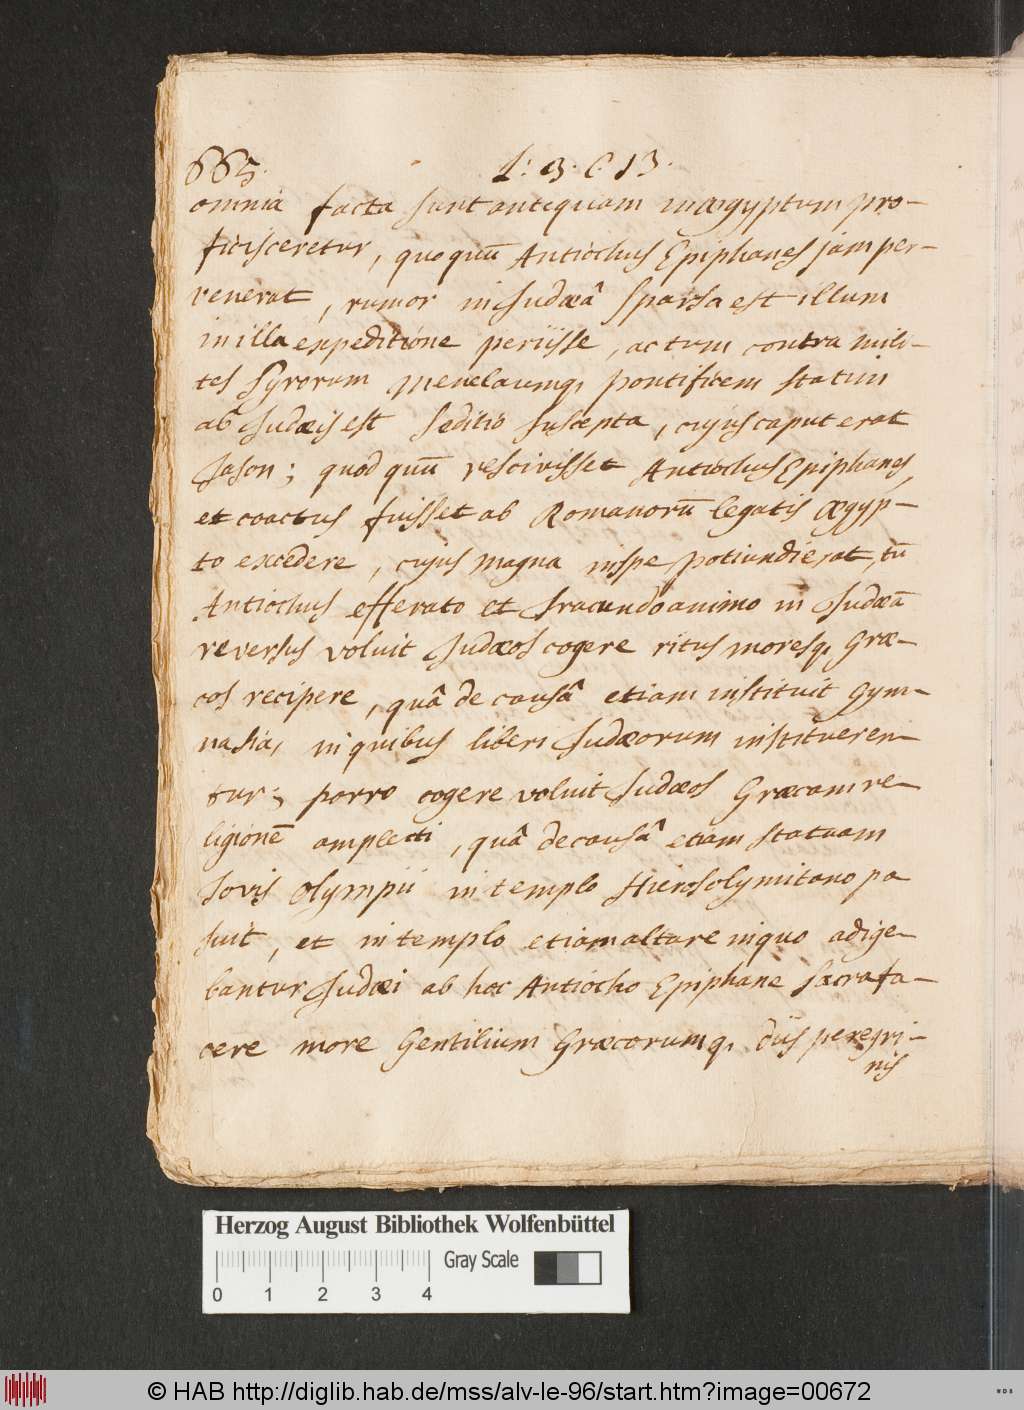 665. l: 3. C 13.
omnia facta sunt antequam in ægyptum pro-
ficisceretur, quo quū Antiochus Epiphanes jam per-
venerat, rumor in Judæâ sparsa est illum
in illa expeditione periisse, ac tum contra mili-
tes Syrorum Menelaumq, pontificem statim
ab Judæis est seditio suscepta, cujus caput erat
Jason; quod quū rescivisset Antiochus Epiphanes,
et coactus fuisset ab Romanorū legatis ægyp-
to excedere, cujus magna in spe potiundi erat, tū
Antiochus efferato et Iracundo animo in Judæā
reversus voluit Judæos cogere ritus moresq, Græ-
cos recipere, quâ de causâ etiam instituit gym-
nasia, in quibus liberi Judæorum institueren-
tur; porro cogere voluit Judæos Græcam re-
ligionē amplecti, quâ de causâ etiam statuam
Jovis Olympii in templo Hierosolymitano po
suit, et in templo etiam altare in quo adige-
bantur Judæi ab hoc Antiocho Epiphane sacra fa-
cere more Gentilium Græcorumq, diis peregri-
nis
Herzog August Bibliothek Wolfenbüttel
Gray Scale
0 1 2 3 4
© HAB http://diglib.hab.de/mss/alv-le-96/start.htm?image=00672